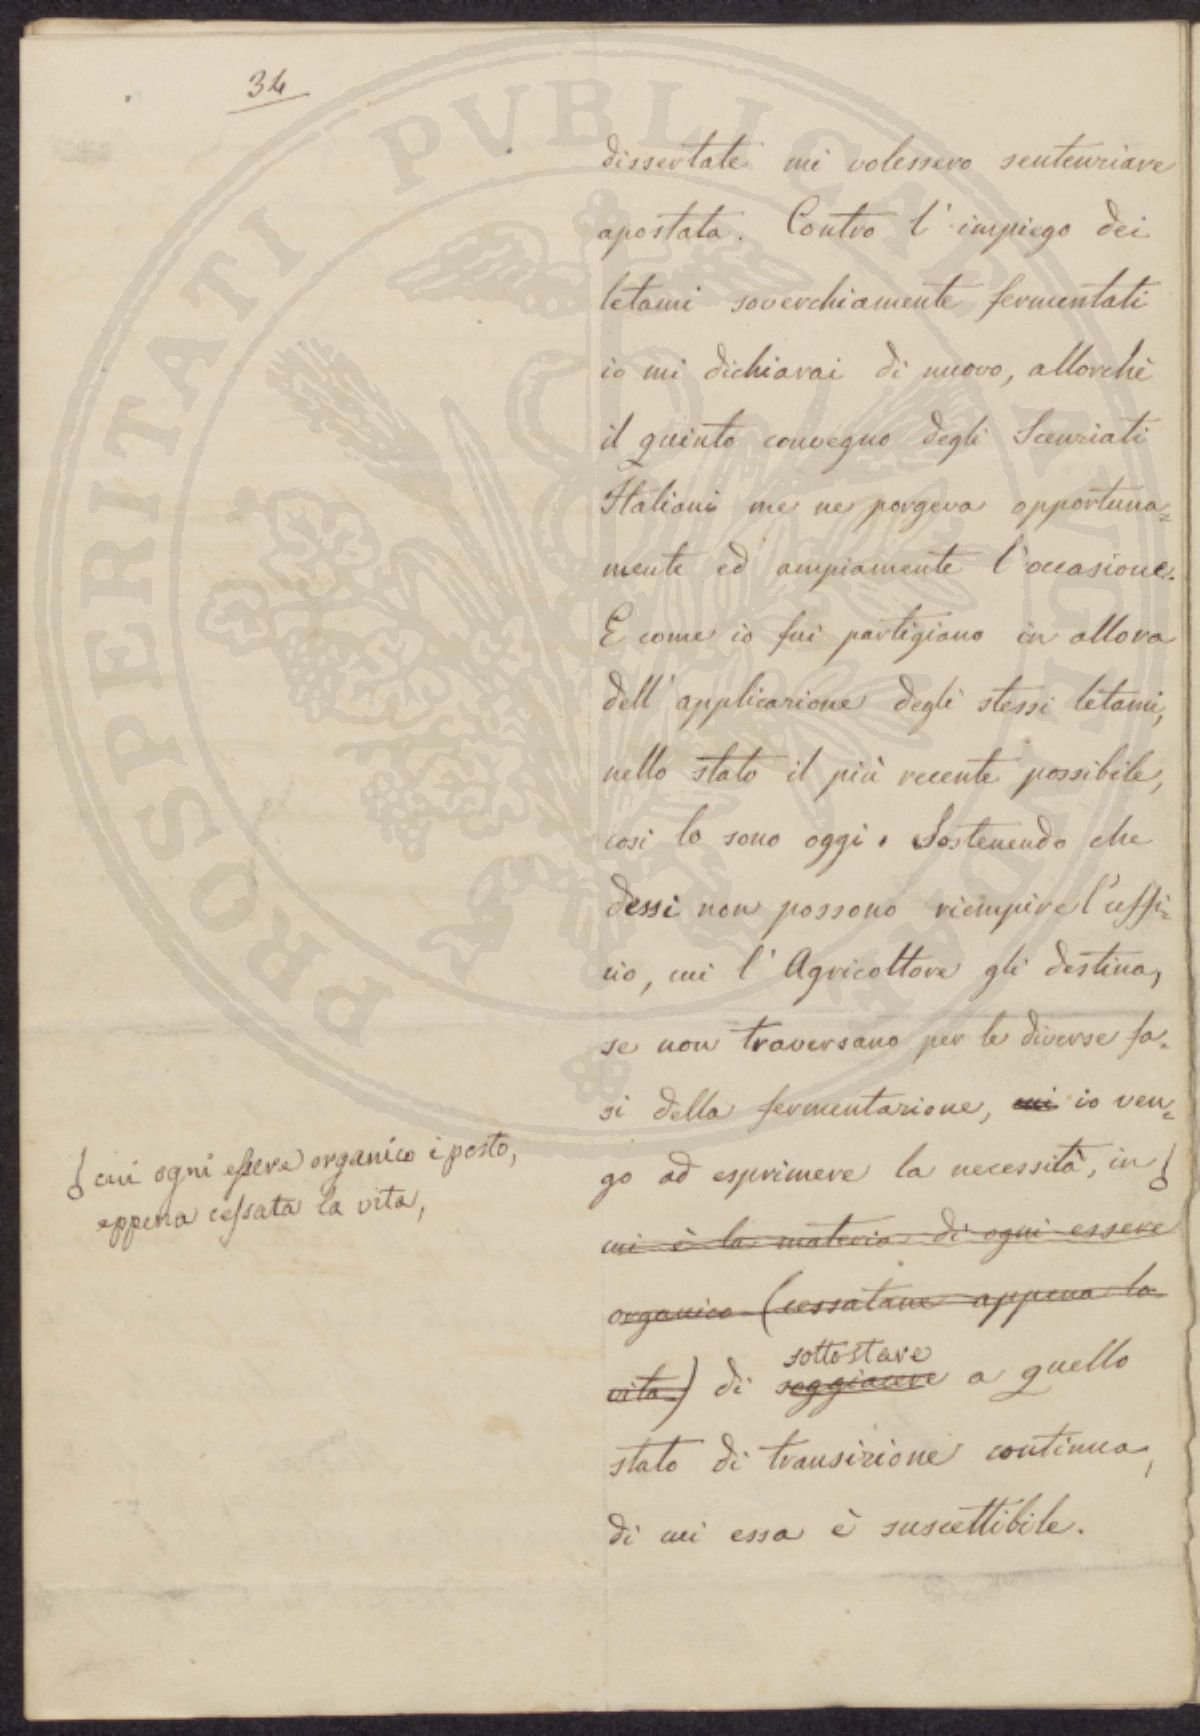 34
dissertate mi volessero sentenziare
apostata. Contro l'impiego dei
letami soverchiamente fermentati
io mi dichiarai di nuovo, allorchè
il quinto convegno degli Scenziati
Italiani me ne porgeva opportuna=
mente ed ampiamente l'occasione.
E come io fui partigiano in allora
dell'applicazione degli stessi letami,
nello stato il più recente possibile,
così lo sono oggi. Sostenendo che
dessi non possono riempire l'uffi=
cio, cui l'Agricoltore gli destina,
se non traversano per le diverse fa=
si della fermentazione, cui io ven=
go ad esprimere la necessità, in
cui ogni essere organico è posto,
appena cessata la vita,
cui è la materia di ogni essere
organico (cessatane appena la
vita) di soggiacere a quello
sottostare
stato di transizione continua,
di cui essa è suscettibile.
PROSPERITATI PVBLICAE AVGENDAE